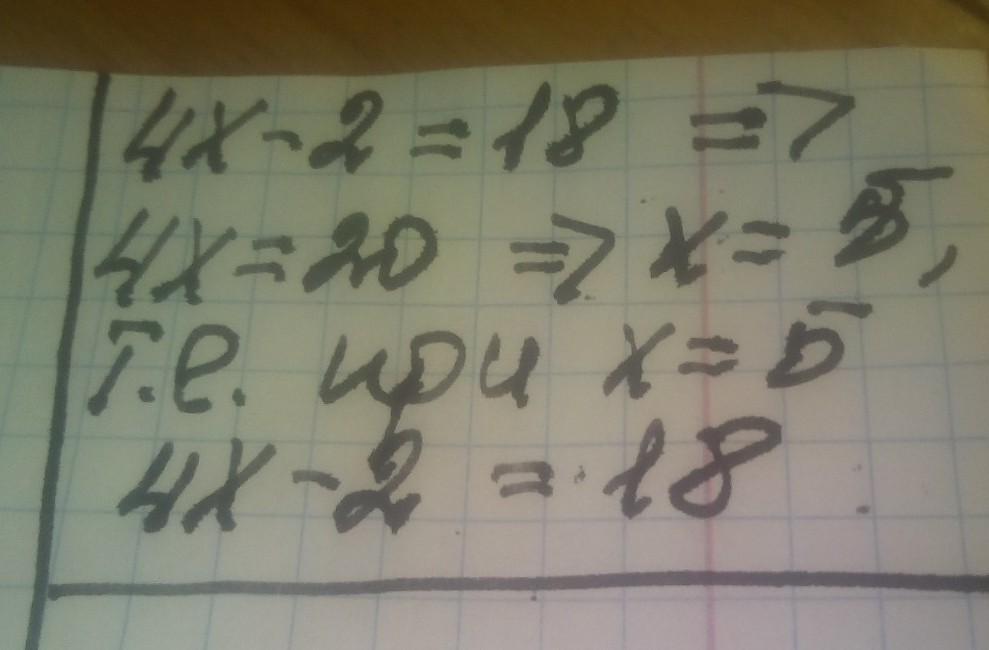 4x - 2 = 18 =>
4x = 20 => x = 5,
т.е. при x = 5
4x - 2 = 18